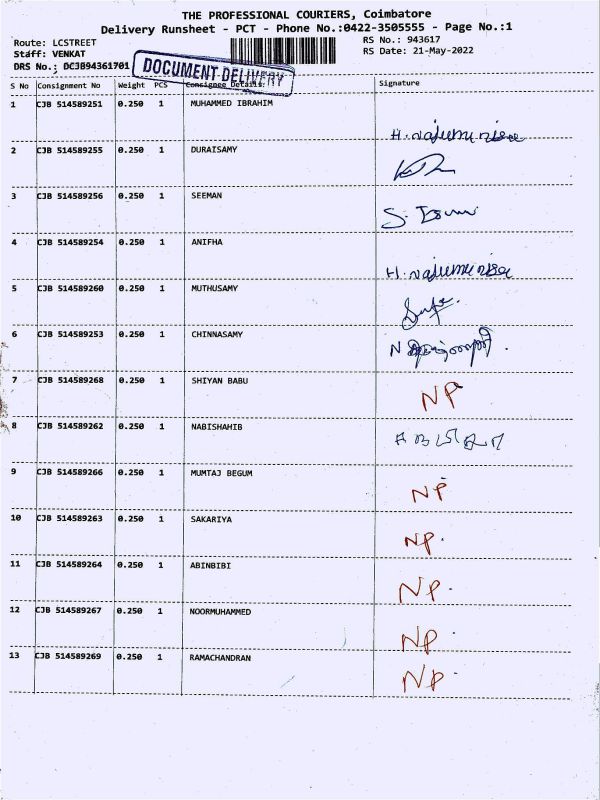 THE PROFESSIONAL COURIERS, Coimbatore
Delivery Runsheet - PCT - Phone No.:0422-3505555 - Page No.:1
Route: LCSTREET RS No.: 943617
Staff: VENKAT RS Date: 21-May-2022
DRS No.: DCJB94361701
DOCUMENT DELIVERY
S No Consignment No Weight PCS Consignee Details Signature
1 CJB 514589251 0.250 1 MUHAMMED IBRAHIM
H. najumu nisa
2 CJB 514589255 0.250 1 DURAISAMY
3 CJB 514589256 0.250 1 SEEMAN
4 CJB 514589254 0.250 1 ANIFHA
H. najumu nisa
5 CJB 514589260 0.250 1 MUTHUSAMY
6 CJB 514589253 0.250 1 CHINNASAMY
7 CJB 514589268 0.250 1 SHIYAN BABU
NP
8 CJB 514589262 0.250 1 NABISHAHIB
9 CJB 514589266 0.250 1 MUMTAJ BEGUM
NP
10 CJB 514589263 0.250 1 SAKARIYA
NP.
11 CJB 514589264 0.250 1 ABINBIBI
NP.
12 CJB 514589267 0.250 1 NOORMUHAMMED
NP.
13 CJB 514589269 0.250 1 RAMACHANDRAN
NP.